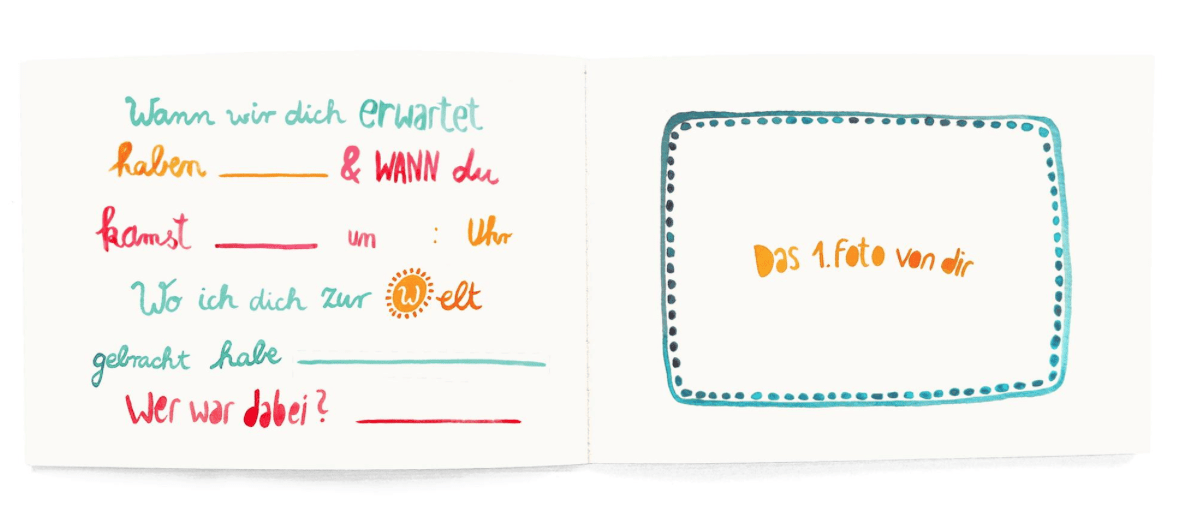 Wann wir dich erwartet
haben ________ & WANN du
kamst ________ um : Uhr
Wo ich dich zur Welt
gebracht habe ________
Wer war dabei? ________
Das 1. Foto von dir